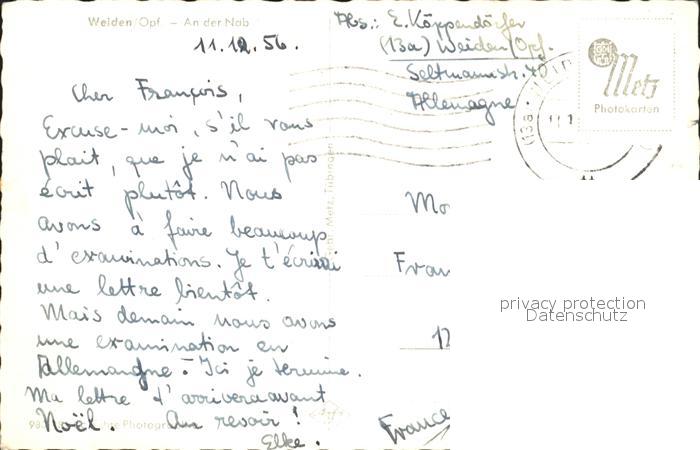 Weiden/Opf. – An der Nab
11.12.56.
Abs.: E. Köppendörfer
(13a) Weiden/Opf.
Seltmannstr. 40
Allemagne
Metz
Photokarten
(13a
Cher François,
Excuse-moi, s'il vous
plait, que je n'ai pas
écrit plutôt. Nous
avons à faire beaucoup
d'examinations. Je t'écrirai
une lettre bientôt.
Mais demain nous avons
une examination en
Allemangne. Ici je termine.
Ma lettre t'arrivera avant
Noël. Au revoir!
Elke.
Gebr. Metz, Tübingen
Mo
Fran
12
France
privacy protection
Datenschutz